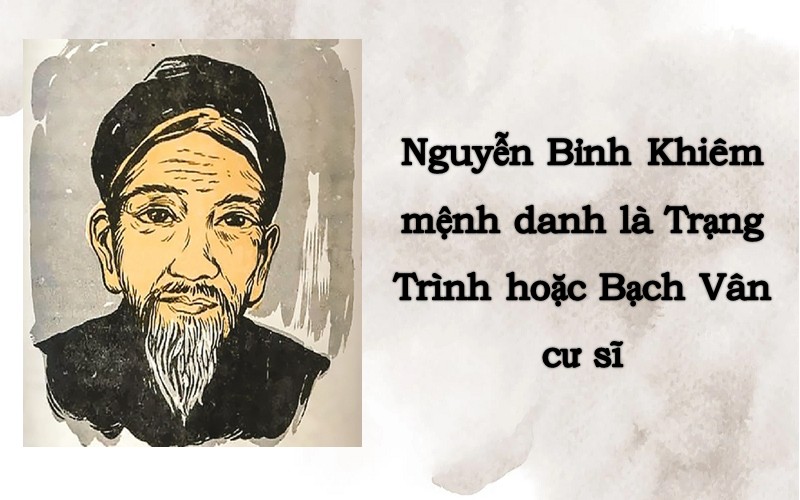 Nguyễn Bỉnh Khiêm
mệnh danh là Trạng
Trình hoặc Bạch Vân
cư sĩ